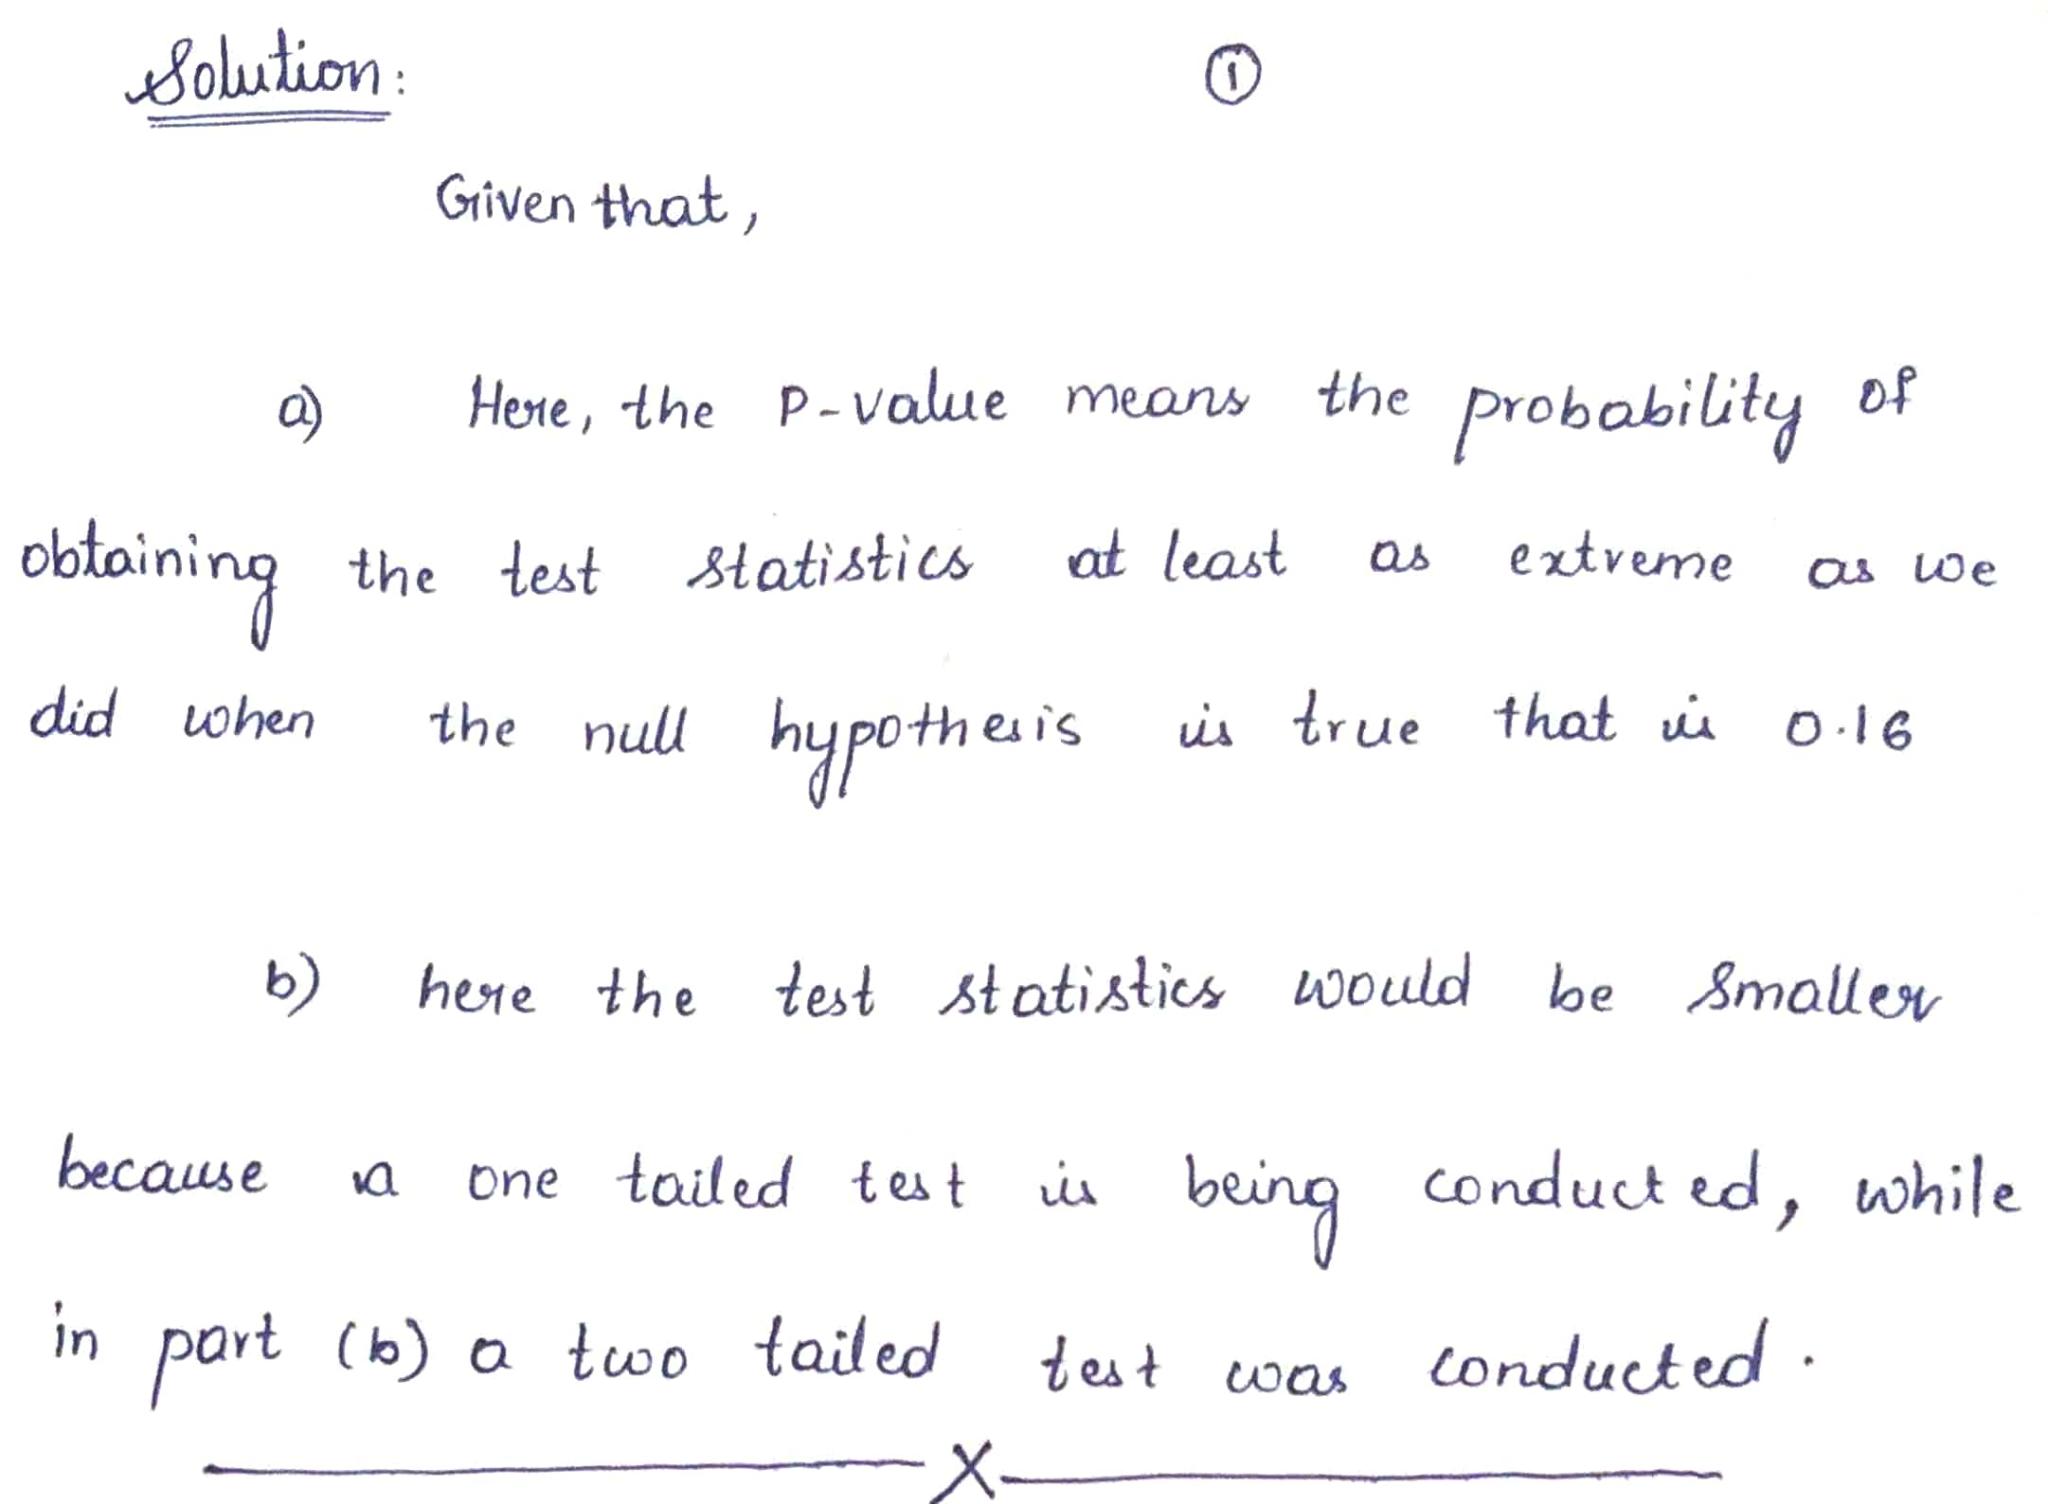 Solution: ①
Given that,
a) Here, the P-value means the probability of
obtaining the test statistics at least as extreme as we
did when the null hypothesis is true that is 0.16
b) here the test statistics would be smaller
because a one tailed test is being conducted, while
in part (b) a two tailed test was conducted.
X